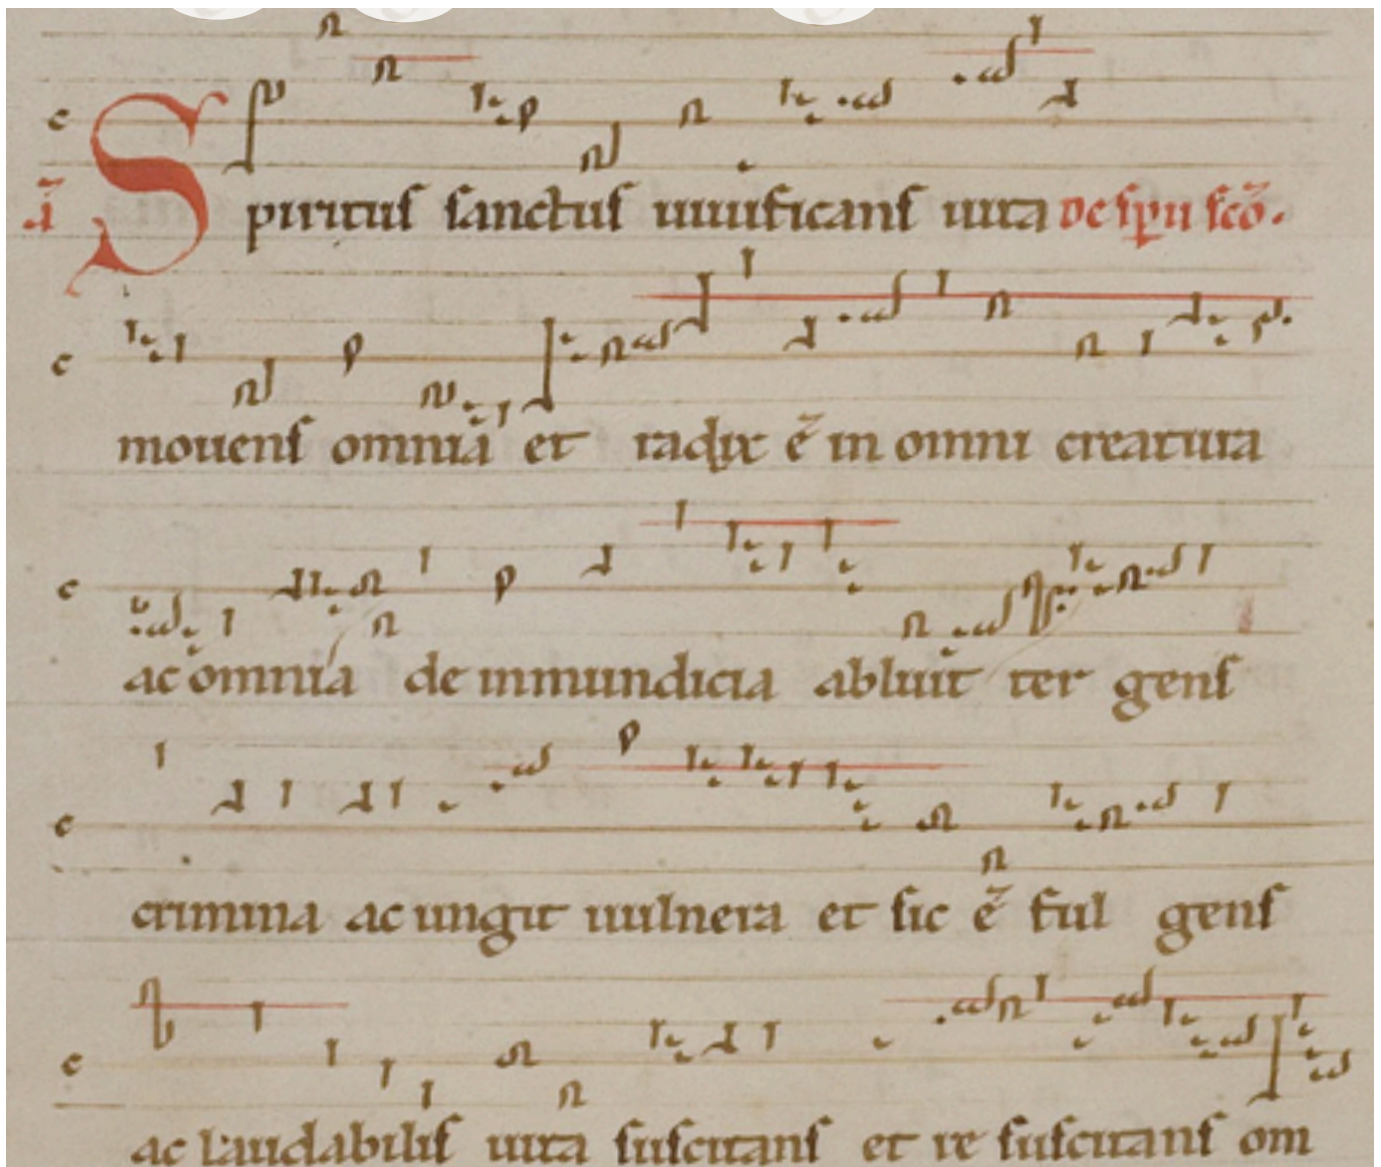 Spiritus sanctus uiuificans uita de spu sco.
mouens omnia et radix ē in omni creatura
ac omnia de inmundicia abluit ter gens
crimina ac ungit uulnera et sic ē ful gens
ac laudabilis uita suscitans et re suscitans om